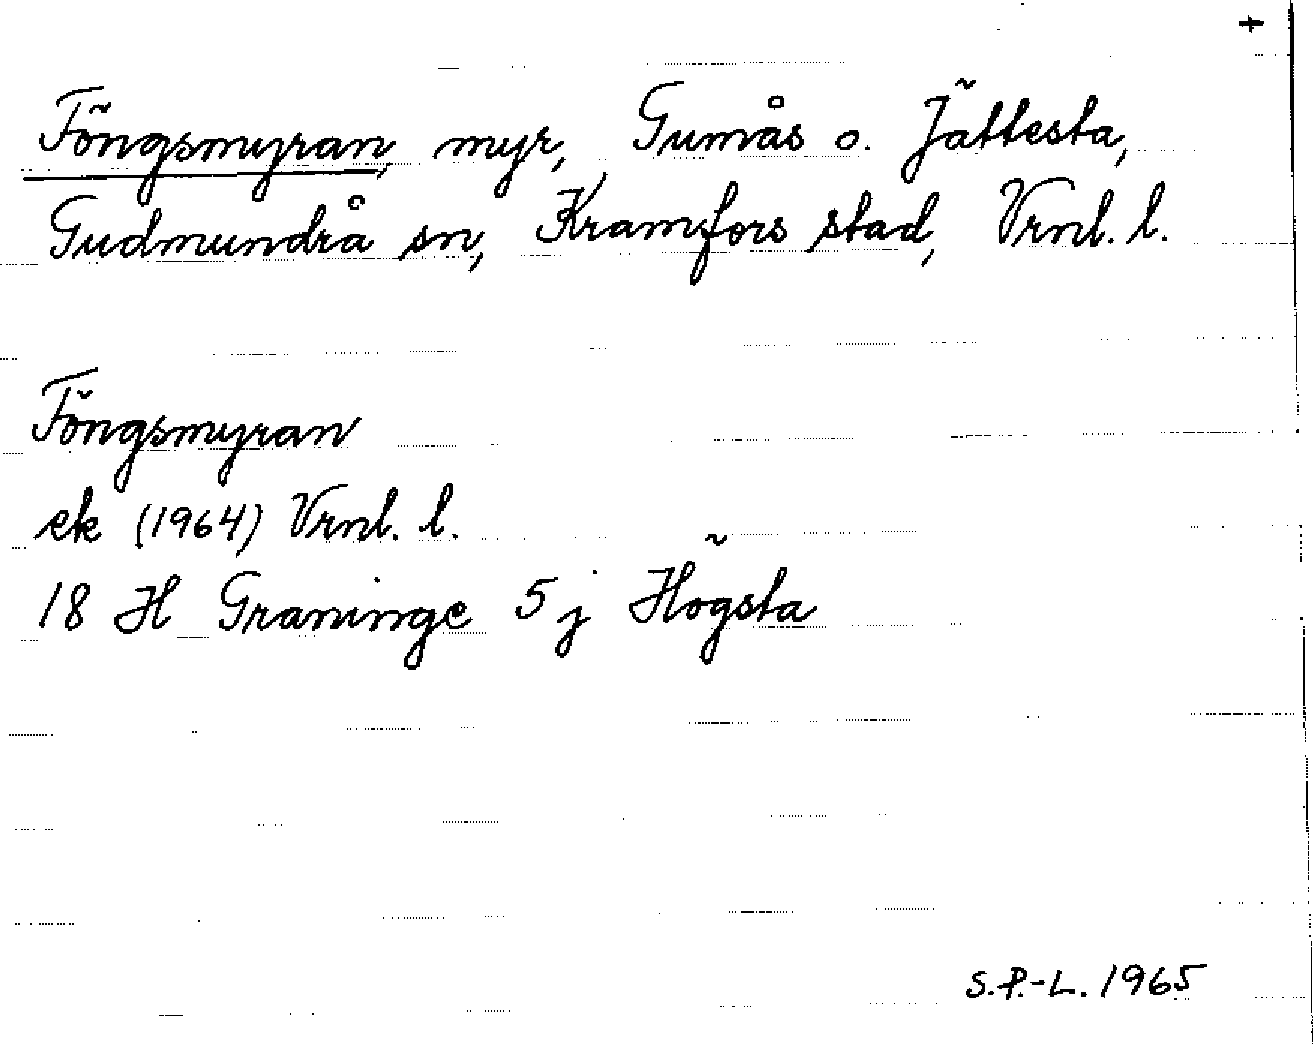 +
Föngsmyran, myr, Gumås o. Jättesta,
Gudmundrå sn, Kramfors stad, Vrnl. l.
Föngsmyran
ek (1964) Vrnl. l.
18 H Graninge 5 j Högsta
S.P.-L. 1965